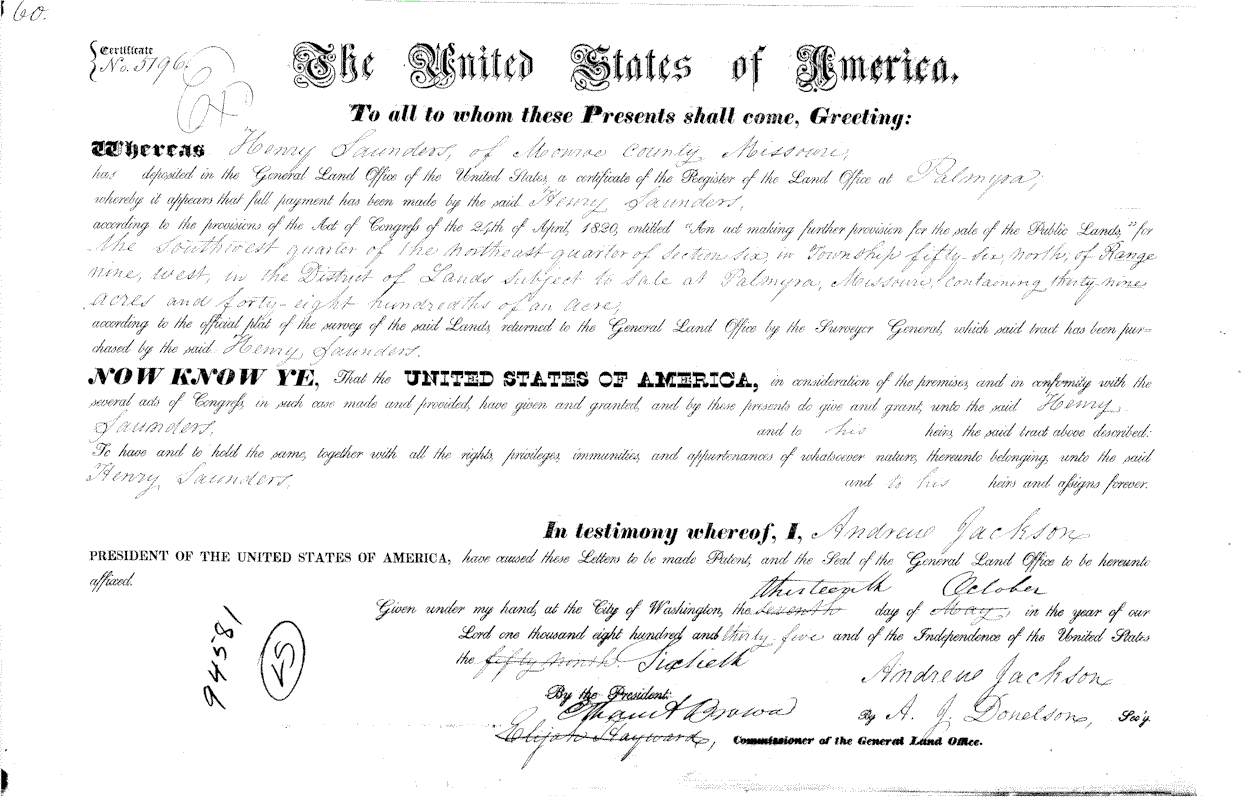 60.
Certificate
No. 5196
The United States of America.
To all to whom these Presents shall come, Greeting:
Whereas Henry Saunders, of Monroe County, Missouri,
has deposited in the General Land Office of the United States, a certificate of the Register of the Land Office at Palmyra,
whereby it appears that full payment has been made by the said Henry Saunders,
according to the provisions of the Act of Congress of the 24th of April, 1820, entitled "An act making further provision for the sale of the Public Lands," for
the Southwest quarter of the Northeast quarter of Section six, in Township fifty-six, north, of Range
nine, west, in the District of Lands subject to sale at Palmyra, Missouri, containing thirty-nine
acres and forty-eight hundredths of an acre,
according to the official plat of the survey of the said Lands, returned to the General Land Office by the Surveyor General, which said tract has been pur-
chased by the said Henry Saunders.
NOW KNOW YE, That the UNITED STATES OF AMERICA, in consideration of the premises, and in conformity with the
several acts of Congress, in such case made and provided, have given and granted, and by these presents do give and grant, unto the said Henry
Saunders, and to his heirs, the said tract above described:
To have and to hold the same, together with all the rights, privileges, immunities, and appurtenances of whatsoever nature, thereunto belonging, unto the said
Henry Saunders, and to his heirs and assigns forever.
In testimony whereof, I, Andrew Jackson
PRESIDENT OF THE UNITED STATES OF AMERICA, have caused these Letters to be made Patent, and the Seal of the General Land Office to be hereunto
affixed.
thirteenth October
Given under my hand, at the City of Washington, the seventh day of May, in the year of our
Lord one thousand eight hundred and thirty-five and of the Independence of the United States
the fifty ninth. Sixtieth
Andrew Jackson
By the President:
Ethan A Brown
By A. J. Donelson, Sec'y.
Elijah Hayward, Commissioner of the General Land Office.
94581